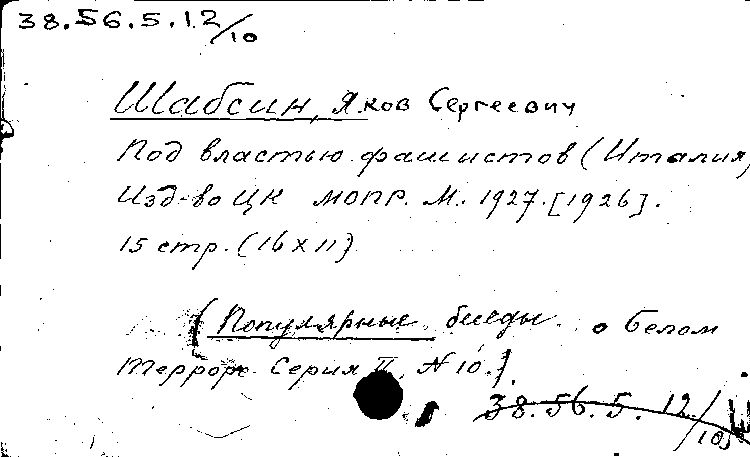 38.56.5.12/10
Шабсин, Яков Сергеевич
Под властью фашистов (Италия)
Изд-во ЦК МОПР. М. 1927. [1926].
15 стр. (16 x 11)
(Популярные беседы о белом
терроре. Серия II, N 10.).
38.56.5.12/10